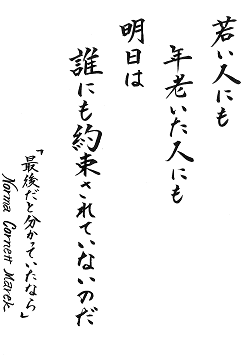 若い人にも
年老いた人にも
明日は
誰にも約束されていないのだ
「最後だと分かっていたなら」
Norma Cornett Marek